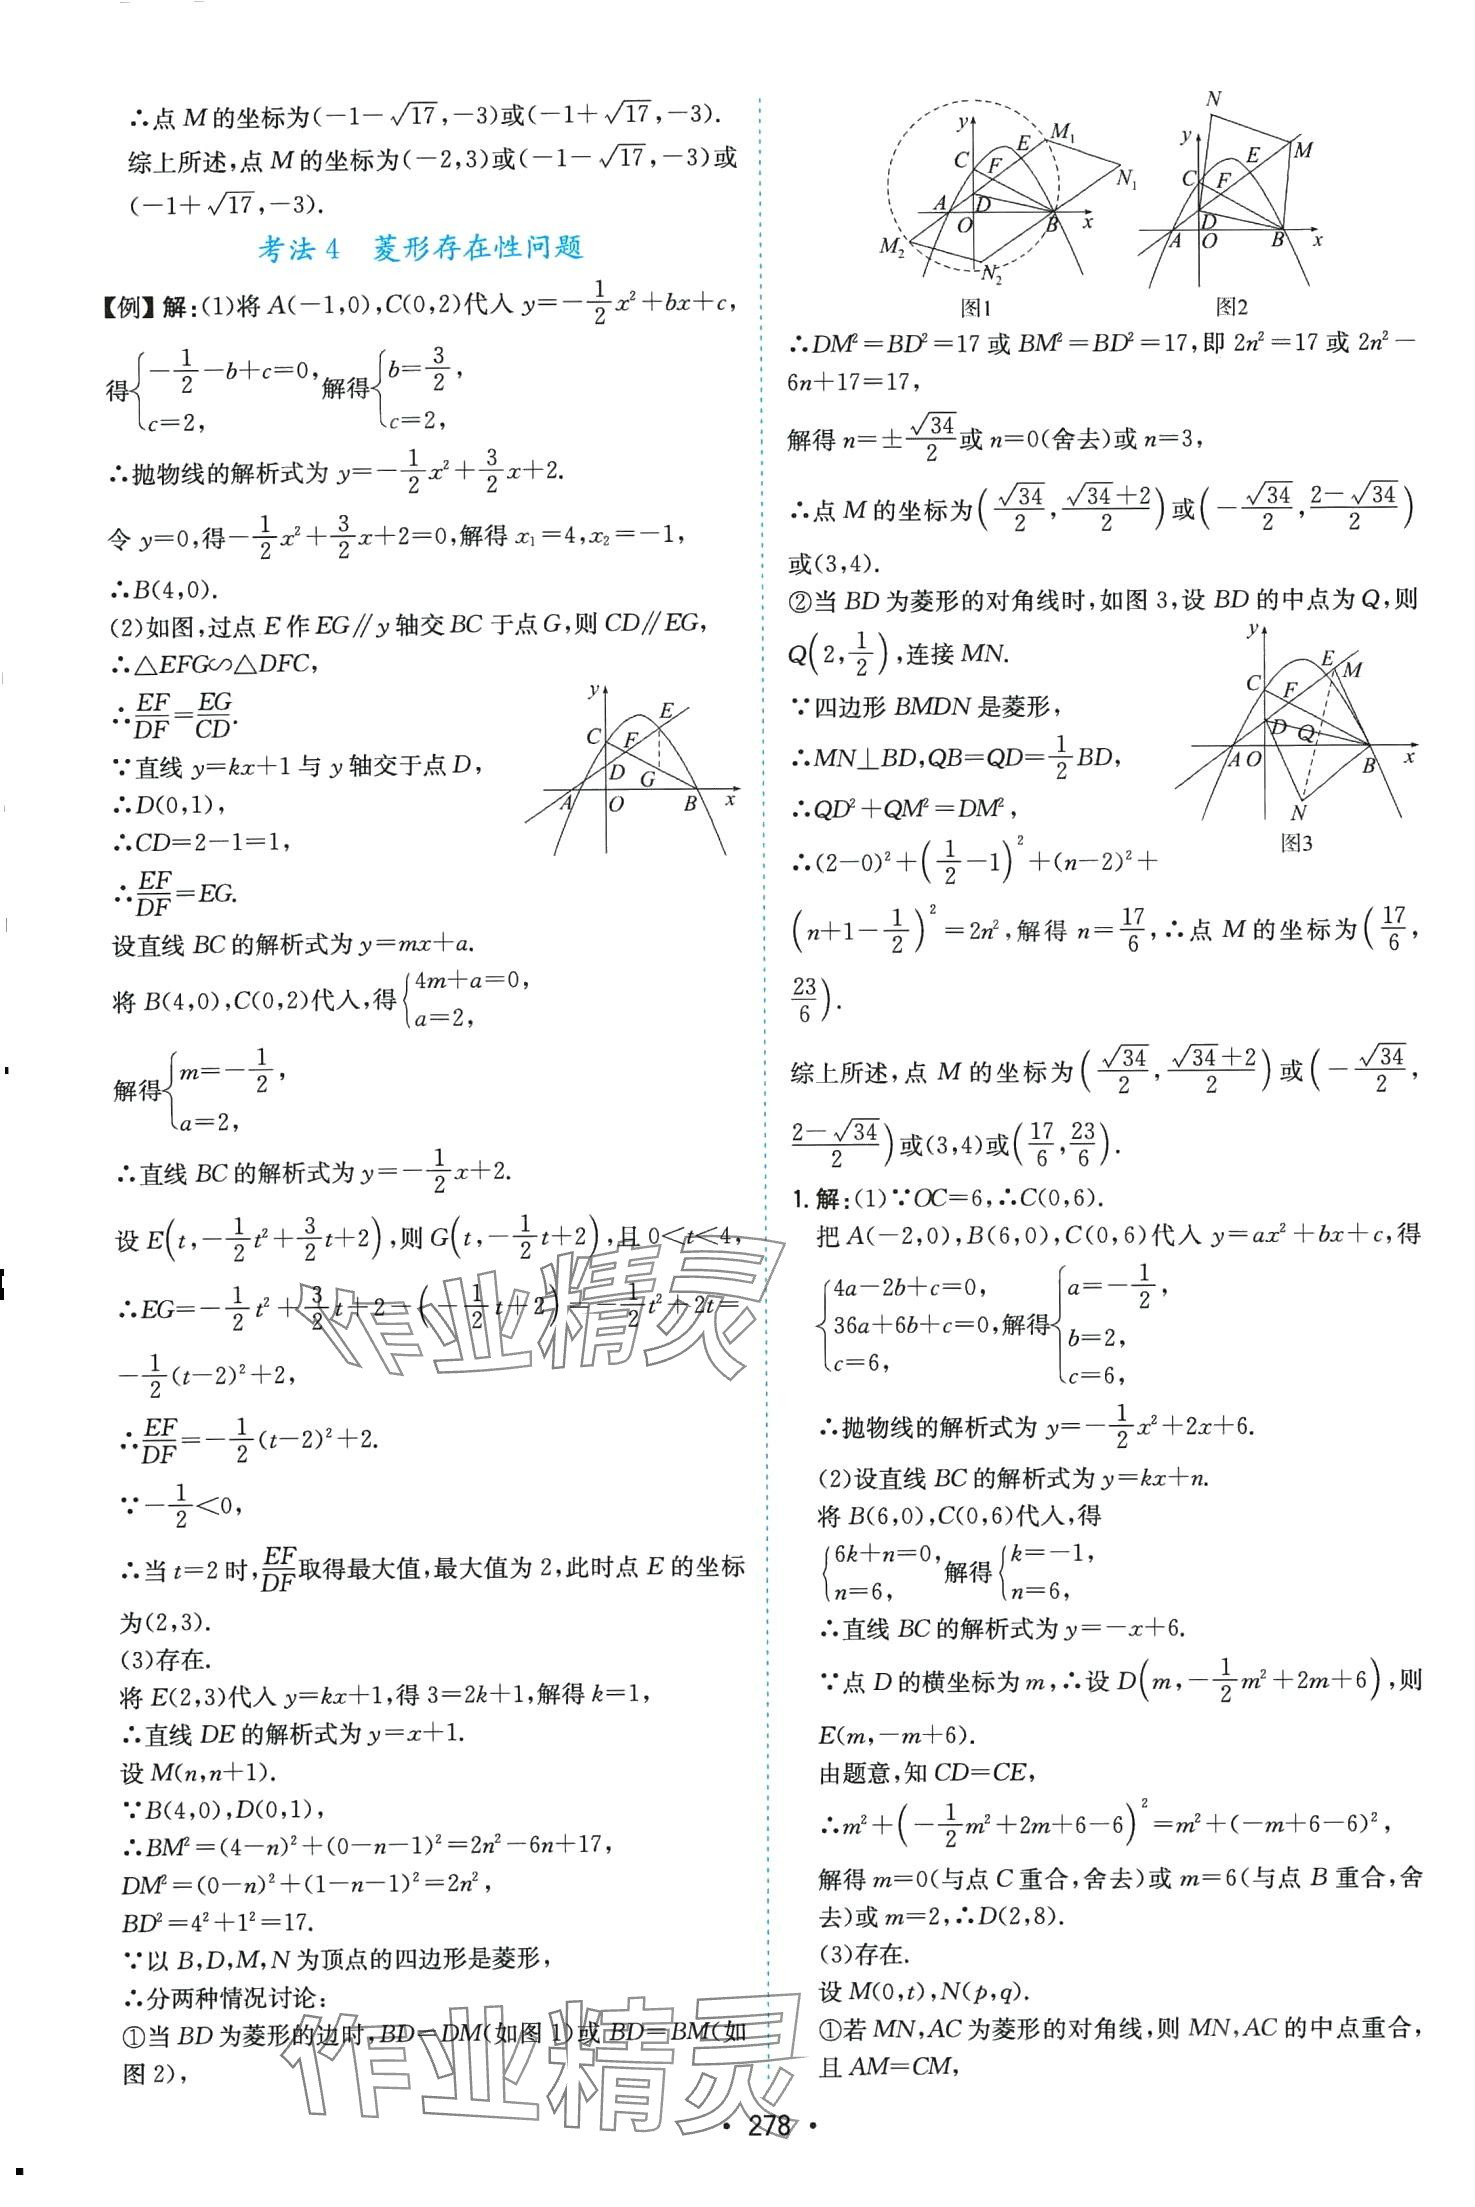 ∴点 M 的坐标为(−1−√17,−3)或(−1+√17,−3).
综上所述,点 M 的坐标为(−2,3)或(−1−√17,−3)或
(−1+√17,−3).
考法 4 菱形存在性问题
【例】解:(1)将 A(−1,0),C(0,2)代入 y=−1/2x²+bx+c,
得{−1/2−b+c=0, c=2, 解得{b=3/2, c=2,
∴抛物线的解析式为 y=−1/2x²+3/2x+2.
令 y=0,得−1/2x²+3/2x+2=0,解得 x₁=4,x₂=−1,
∴B(4,0).
(2)如图,过点 E 作 EG∥y 轴交 BC 于点 G,则 CD∥EG,
∴△EFG∽△DFC,
∴EF/DF=EG/CD.
∵直线 y=kx+1 与 y 轴交于点 D,
∴D(0,1),
∴CD=2−1=1,
∴EF/DF=EG.
y
E
C
F
D
G
A
O
B
x
设直线 BC 的解析式为 y=mx+a.
将 B(4,0),C(0,2)代入,得{4m+a=0, a=2,
解得{m=−1/2, a=2,
∴直线 BC 的解析式为 y=−1/2x+2.
设 E(t,−1/2t²+3/2t+2),则 G(t,−1/2t+2),且 0<t<4,
∴EG=−1/2t²+3/2t+2−(−1/2t+2)=−1/2t²+2t=
−1/2(t−2)²+2,
∴EF/DF=−1/2(t−2)²+2.
∵−1/2<0,
∴当 t=2 时,EF/DF取得最大值,最大值为 2,此时点 E 的坐标
为(2,3).
(3)存在.
将 E(2,3)代入 y=kx+1,得 3=2k+1,解得 k=1,
∴直线 DE 的解析式为 y=x+1.
设 M(n,n+1).
∵B(4,0),D(0,1),
∴BM²=(4−n)²+(0−n−1)²=2n²−6n+17,
DM²=(0−n)²+(1−n−1)²=2n²,
BD²=4²+1²=17.
∵以 B,D,M,N 为顶点的四边形是菱形,
∴分两种情况讨论:
①当 BD 为菱形的边时,BD=DM(如图 1)或 BD=BM(如
图 2),
y
E
M₁
C
F
N₁
A
D
O
B
x
M₂
N₂
图1
N
y
E
M
C
F
D
A
O
B
x
图2
∴DM²=BD²=17 或 BM²=BD²=17,即 2n²=17 或 2n²−
6n+17=17,
解得 n=±√34/2或 n=0(舍去)或 n=3,
∴点 M 的坐标为(√34/2,√34+2/2)或(−√34/2,2−√34/2)
或(3,4).
②当 BD 为菱形的对角线时,如图 3,设 BD 的中点为 Q,则
Q(2,1/2),连接 MN.
∵四边形 BMDN 是菱形,
∴MN⊥BD,QB=QD=1/2BD,
∴QD²+QM²=DM²,
∴(2−0)²+(1/2−1)²+(n−2)²+
y
E
M
C
F
D
Q
A
O
B
x
N
图3
(n+1−1/2)²=2n²,解得 n=17/6,∴点 M 的坐标为(17/6,
23/6).
综上所述,点 M 的坐标为(√34/2,√34+2/2)或(−√34/2,
2−√34/2)或(3,4)或(17/6,23/6).
1.解:(1)∵OC=6,∴C(0,6).
把 A(−2,0),B(6,0),C(0,6)代入 y=ax²+bx+c,得
{4a−2b+c=0, 36a+6b+c=0, c=6, 解得{a=−1/2, b=2, c=6,
∴抛物线的解析式为 y=−1/2x²+2x+6.
(2)设直线 BC 的解析式为 y=kx+n.
将 B(6,0),C(0,6)代入,得
{6k+n=0, n=6, 解得{k=−1, n=6,
∴直线 BC 的解析式为 y=−x+6.
∵点 D 的横坐标为 m,∴设 D(m,−1/2m²+2m+6),则
E(m,−m+6).
由题意,知 CD=CE,
∴m²+(−1/2m²+2m+6−6)²=m²+(−m+6−6)²,
解得 m=0(与点 C 重合,舍去)或 m=6(与点 B 重合,舍
去)或 m=2,∴D(2,8).
(3)存在.
设 M(0,t),N(p,q).
①若 MN,AC 为菱形的对角线,则 MN,AC 的中点重合,
且 AM=CM,
作业精灵
作业精灵
• 278 •